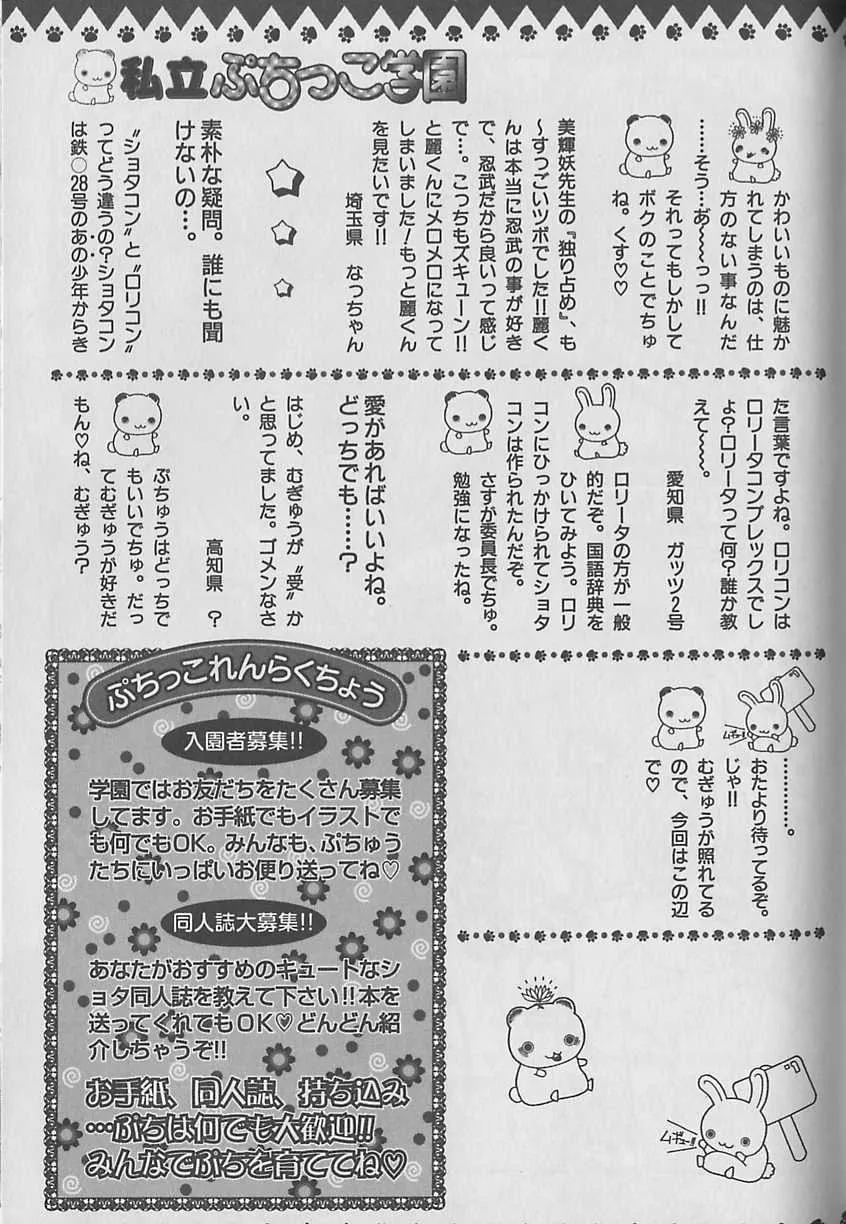 私立ぷちっこ学園
かわいいものに魅か
れてしまうのは、仕
方のない事なんだ
……そう…あ゙〜〜っっ!!
それってもしかして
ボクのことでちゅ
ね。くす♡♡
美輝妖先生の『独り占め』、も
〜すっごいツボでした!!麗く
んは本当に忍武の事が好き
で、忍武だから良いって感じ
で…。こっちもズキューン!!
と麗くんにメロメロになって
しまいました!もっと麗くん
を見たいです!!
埼玉県 なっちゃん
素朴な疑問。誰にも聞
けないの…。
〝ショタコン〟と〝ロリコン〟
ってどう違うの?ショタコン
は鉄○28号のあの少年からき
た言葉ですよね。ロリコンは
ロリータコンプレックスでし
ょ?ロリータって何?誰か教
えて〜〜〜。
愛知県 ガッツ2号
ロリータの方が一般
的だぞ。国語辞典を
ひいてみよう。ロリ
コンにひっかけられてショタ
コンは作られたんだぞ。
さすが委員長でちゅ。
勉強になったね。
愛があればいいよね。
どっちでも……?
はじめ、むぎゅうが〝受〟か
と思ってました。ゴメンなさ
い。
高知県 ?
ぷちゅうはどっちで
もいいでちゅ。だっ
てむぎゅうが好きだ
もん♡ね、むぎゅう?
……………。
おたより待ってるぞ。
じゃ!!
むぎゅうが照れてる
ので、今回はこの辺
で♡
ぷちっこれんらくちょう
入園者募集!!
学園ではお友だちをたくさん募集
してます。お手紙でもイラストで
も何でもOK。みんなも、ぷちゅう
たちにいっぱいお便り送ってね♡
同人誌大募集!!
あなたがおすすめのキュートなシ
ョタ同人誌を教えて下さい!!本を
送ってくれてもOK♡どんどん紹
介しちゃうぞ!!
お手紙、同人誌、持ち込み
…ぷちは何でも大歓迎!!
みんなでぷちを育ててね♡